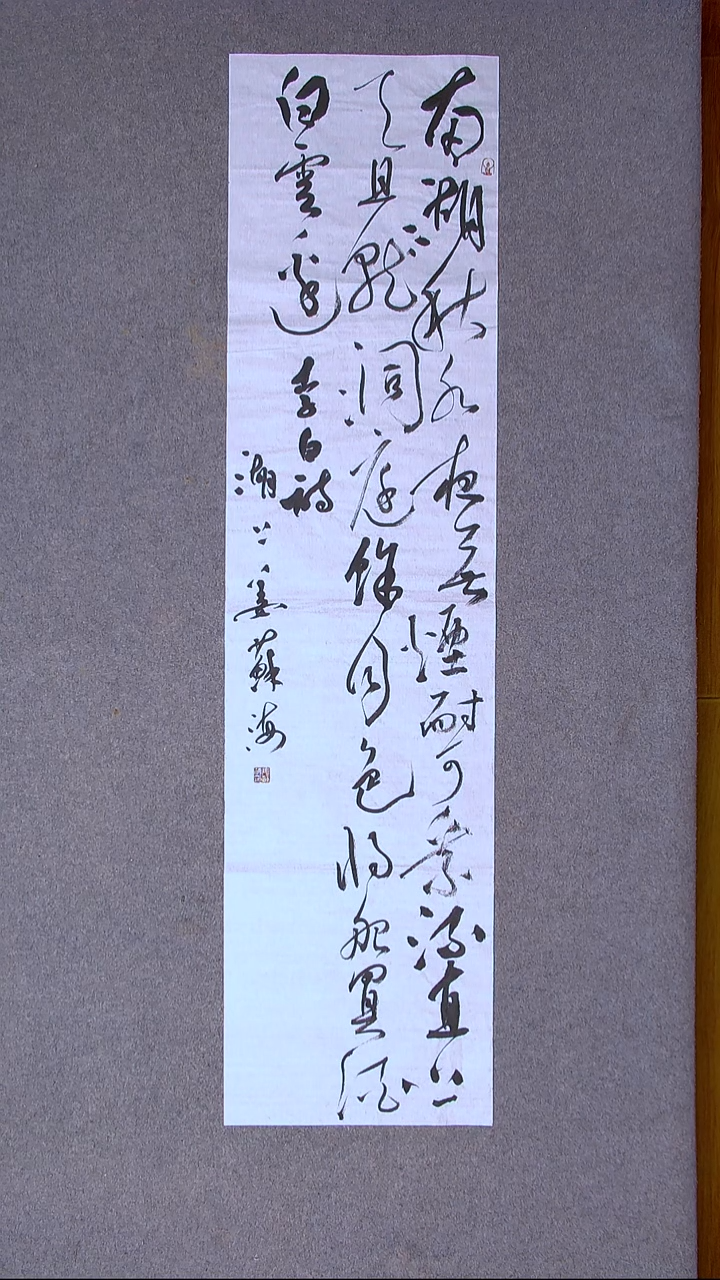 南湖秋水夜無煙耐可乘流直上
天且就洞庭賒月色將船買酒
白雲邊 李白詩
潮上姜蘇海